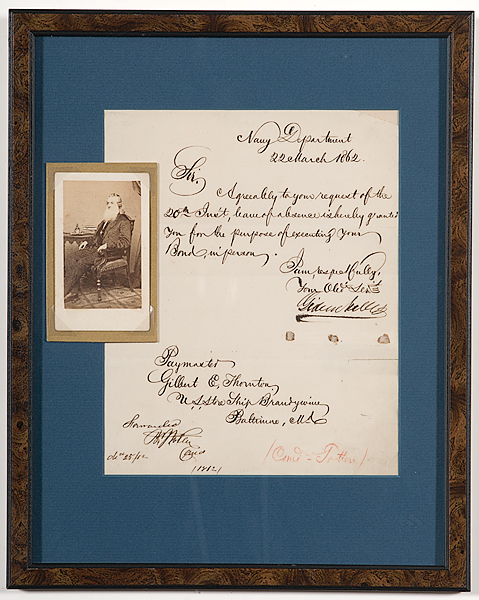 Navy Department
22 March 1862.
Sir,
Agreeably to your request of the
20th Inst, leave of absence is hereby granted
You for the purpose of executing Your
Bond, in person.
I am, respectfully,
Your Obt. Servt
Gideon Welles
Paymaster
Gilbert E. Thornton,
U.S. Store Ship Brandywine
Baltimore, Md
Forwarded
(1812)